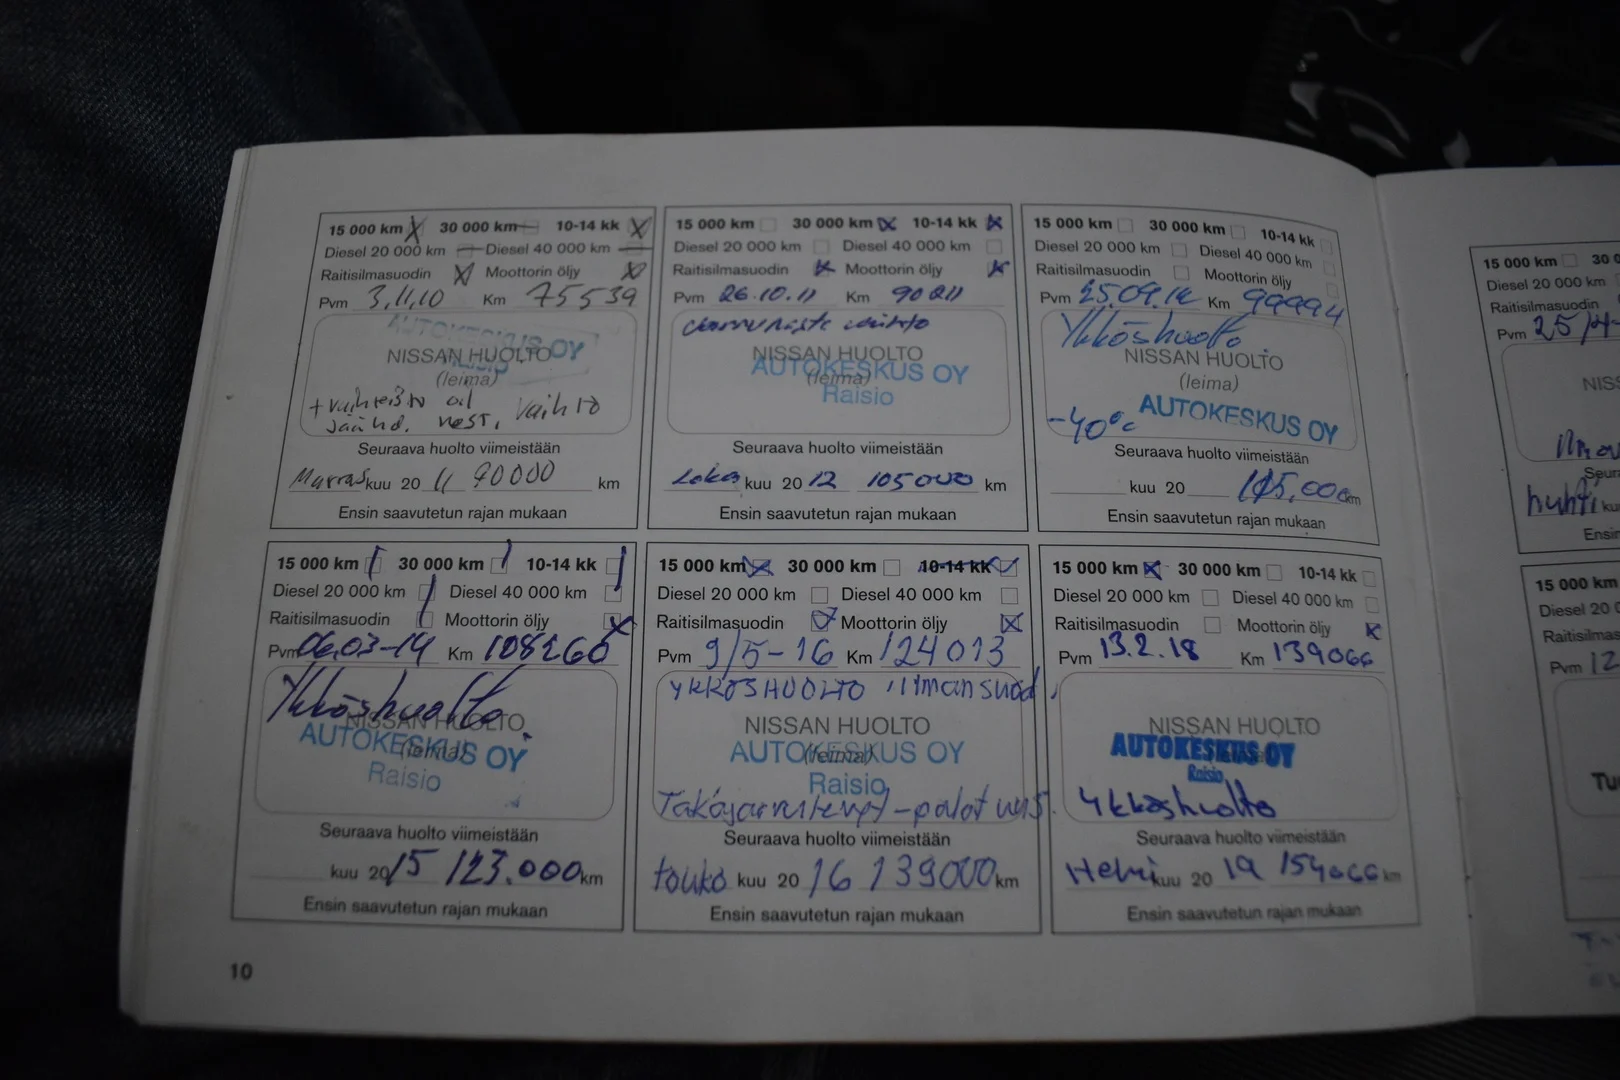 15 000 km 30 000 km 10-14 kk
Diesel 20 000 km Diesel 40 000 km
Raitisilmasuodin Moottorin öljy
Pvm 3.11.10 Km 75539
AUTOKESKUS OY
NISSAN HUOLTO
RAISIO
(leima)
+ vaihteisto öil
jäähd. nest. vaihto
Seuraava huolto viimeistään
Marras kuu 20 11 90000 km
Ensin saavutetun rajan mukaan
15 000 km 30 000 km 10-14 kk
Diesel 20 000 km Diesel 40 000 km
Raitisilmasuodin Moottorin öljy
Pvm 26.10.11 Km 90211
jarruneste vaihto
NISSAN HUOLTO
AUTOKESKUS OY
(leima)
Raisio
Seuraava huolto viimeistään
Loka kuu 20 12 105000 km
Ensin saavutetun rajan mukaan
15 000 km 30 000 km 10-14 kk
Diesel 20 000 km Diesel 40 000 km
Raitisilmasuodin Moottorin öljy
Pvm 25.09.12 Km 99994
Ykköshuolto
NISSAN HUOLTO
(leima)
-40°c AUTOKESKUS OY
Seuraava huolto viimeistään
kuu 20 115.000 km
Ensin saavutetun rajan mukaan
15 000 km 30 000 km 10-14 kk
Diesel 20 000 km Diesel 40 000 km
Raitisilmasuodin Moottorin öljy
Pvm 06.03-14 Km 108260
Ykköshuolto
NISSAN HUOLTO
AUTOKESKUS OY
(leima)
Raisio
Seuraava huolto viimeistään
kuu 20 15 123.000 km
Ensin saavutetun rajan mukaan
15 000 km 30 000 km 10-14 kk
Diesel 20 000 km Diesel 40 000 km
Raitisilmasuodin Moottorin öljy
Pvm 9/5-16 Km 124013
YKKÖSHUOLTO ilmansuod.
NISSAN HUOLTO
AUTOKESKUS OY
(leima)
Raisio
Takajarrulevyt-palat uus.
Seuraava huolto viimeistään
touko kuu 20 16 139000 km
Ensin saavutetun rajan mukaan
15 000 km 30 000 km 10-14 kk
Diesel 20 000 km Diesel 40 000 km
Raitisilmasuodin Moottorin öljy
Pvm 13.2.18 Km 139066
NISSAN HUOLTO
AUTOKESKUS OY
Raisio
Ykköshuolto
Seuraava huolto viimeistään
Helmi kuu 20 19 154066 km
Ensin saavutetun rajan mukaan
10
15 000 km 30
Diesel 20 000 km
Raitisilmasuodin
Pvm 25/4-
NISS
Seur
huhti ku
Ensin
15 000 km
Diesel 20 000
Raitisilmasu
Pvm 12
TU